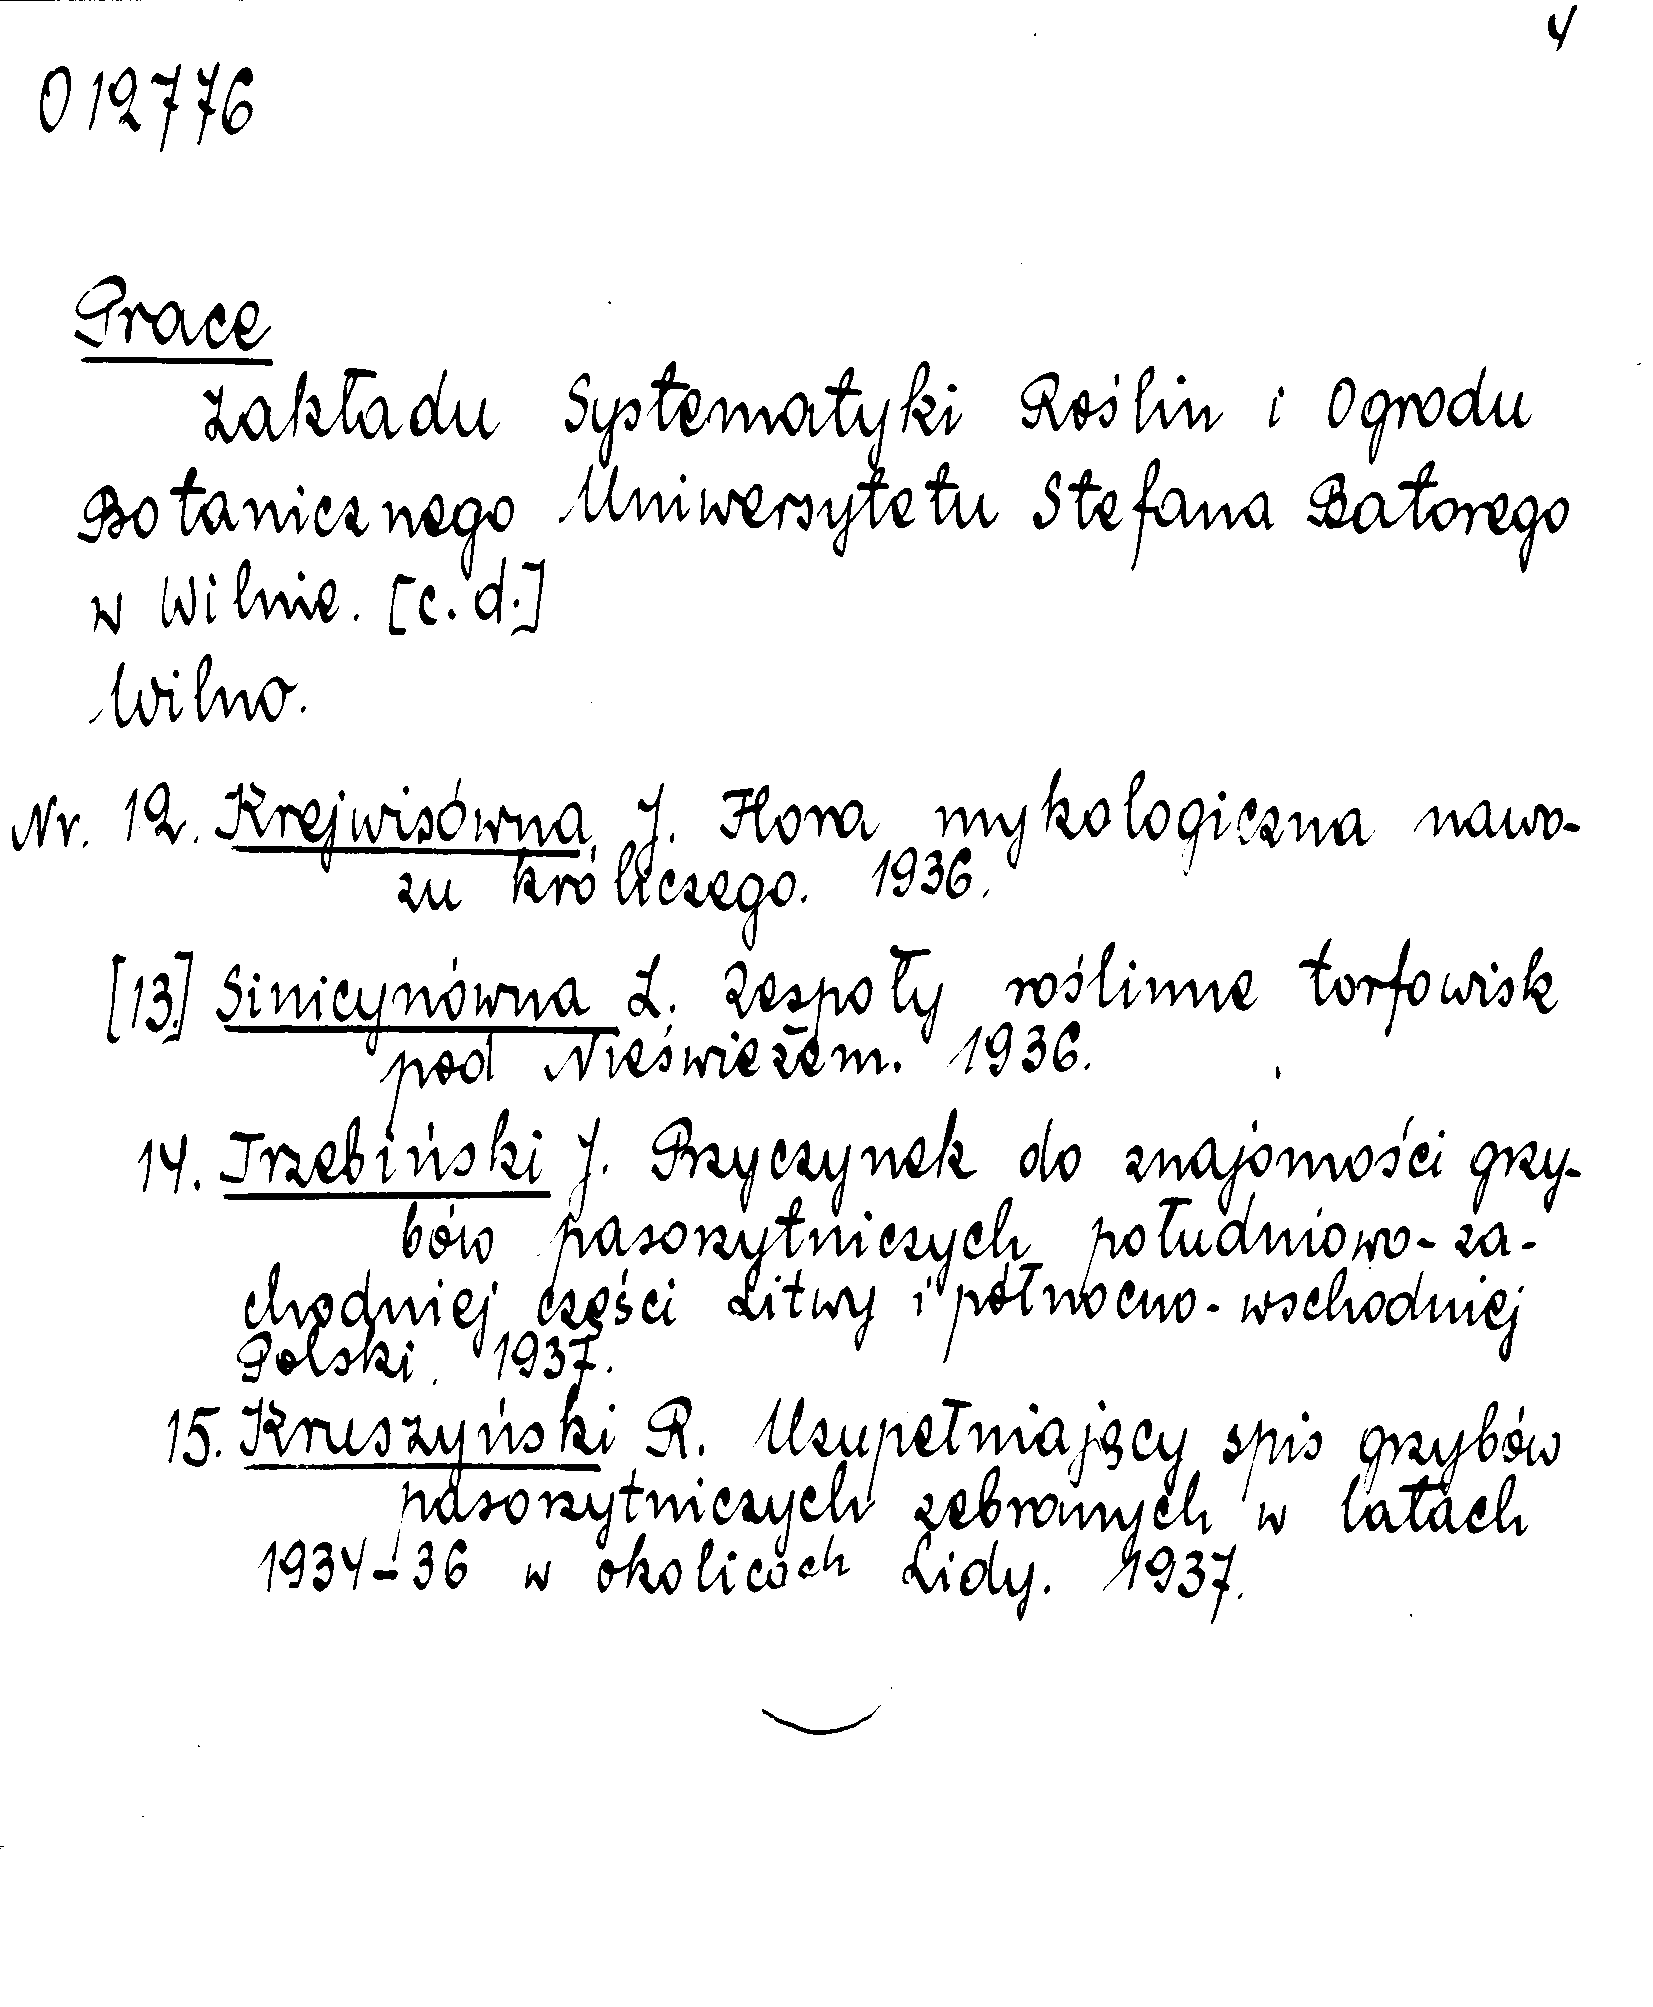 4
012776
Prace
Zakładu Systematyki Roślin i Ogrodu
Botanicznego Uniwersytetu Stefana Batorego
w Wilnie. [c.d.]
Wilno.
Nr. 12. Krejwisówna, J. Flora mykologiczna nawo-
zu króliczego. 1936.
[13.] Sinicynówna L. Zespoły roślinne torfowisk
pod Nieświeżem. 1936.
14. Trzebiński J. Przyczynek do znajomości grzy-
bów pasorzytniczych południowo-za-
chodniej części Litwy i północno-wschodniej
Polski. 1937.
15. Kruszyński R. Uzupełniający spis grzybów
pasorzytniczych zebranych w latach
1934-36 w okolicach Lidy. 1937.